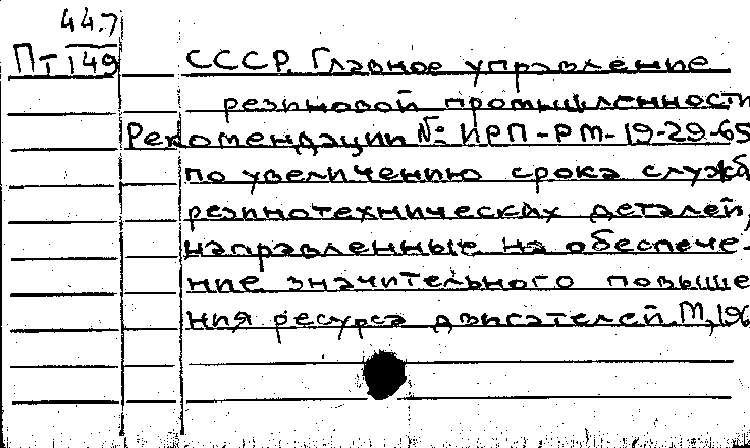 44.7
Пт 149
СССР. Главное управление
резиновой промышленности
Рекомендации № ИРП-РМ-19-29-65
по увеличению срока служб
резинотехнических деталей,
направленные на обеспече-
ние значительного повыше
ния ресурса двигателей. М, 196